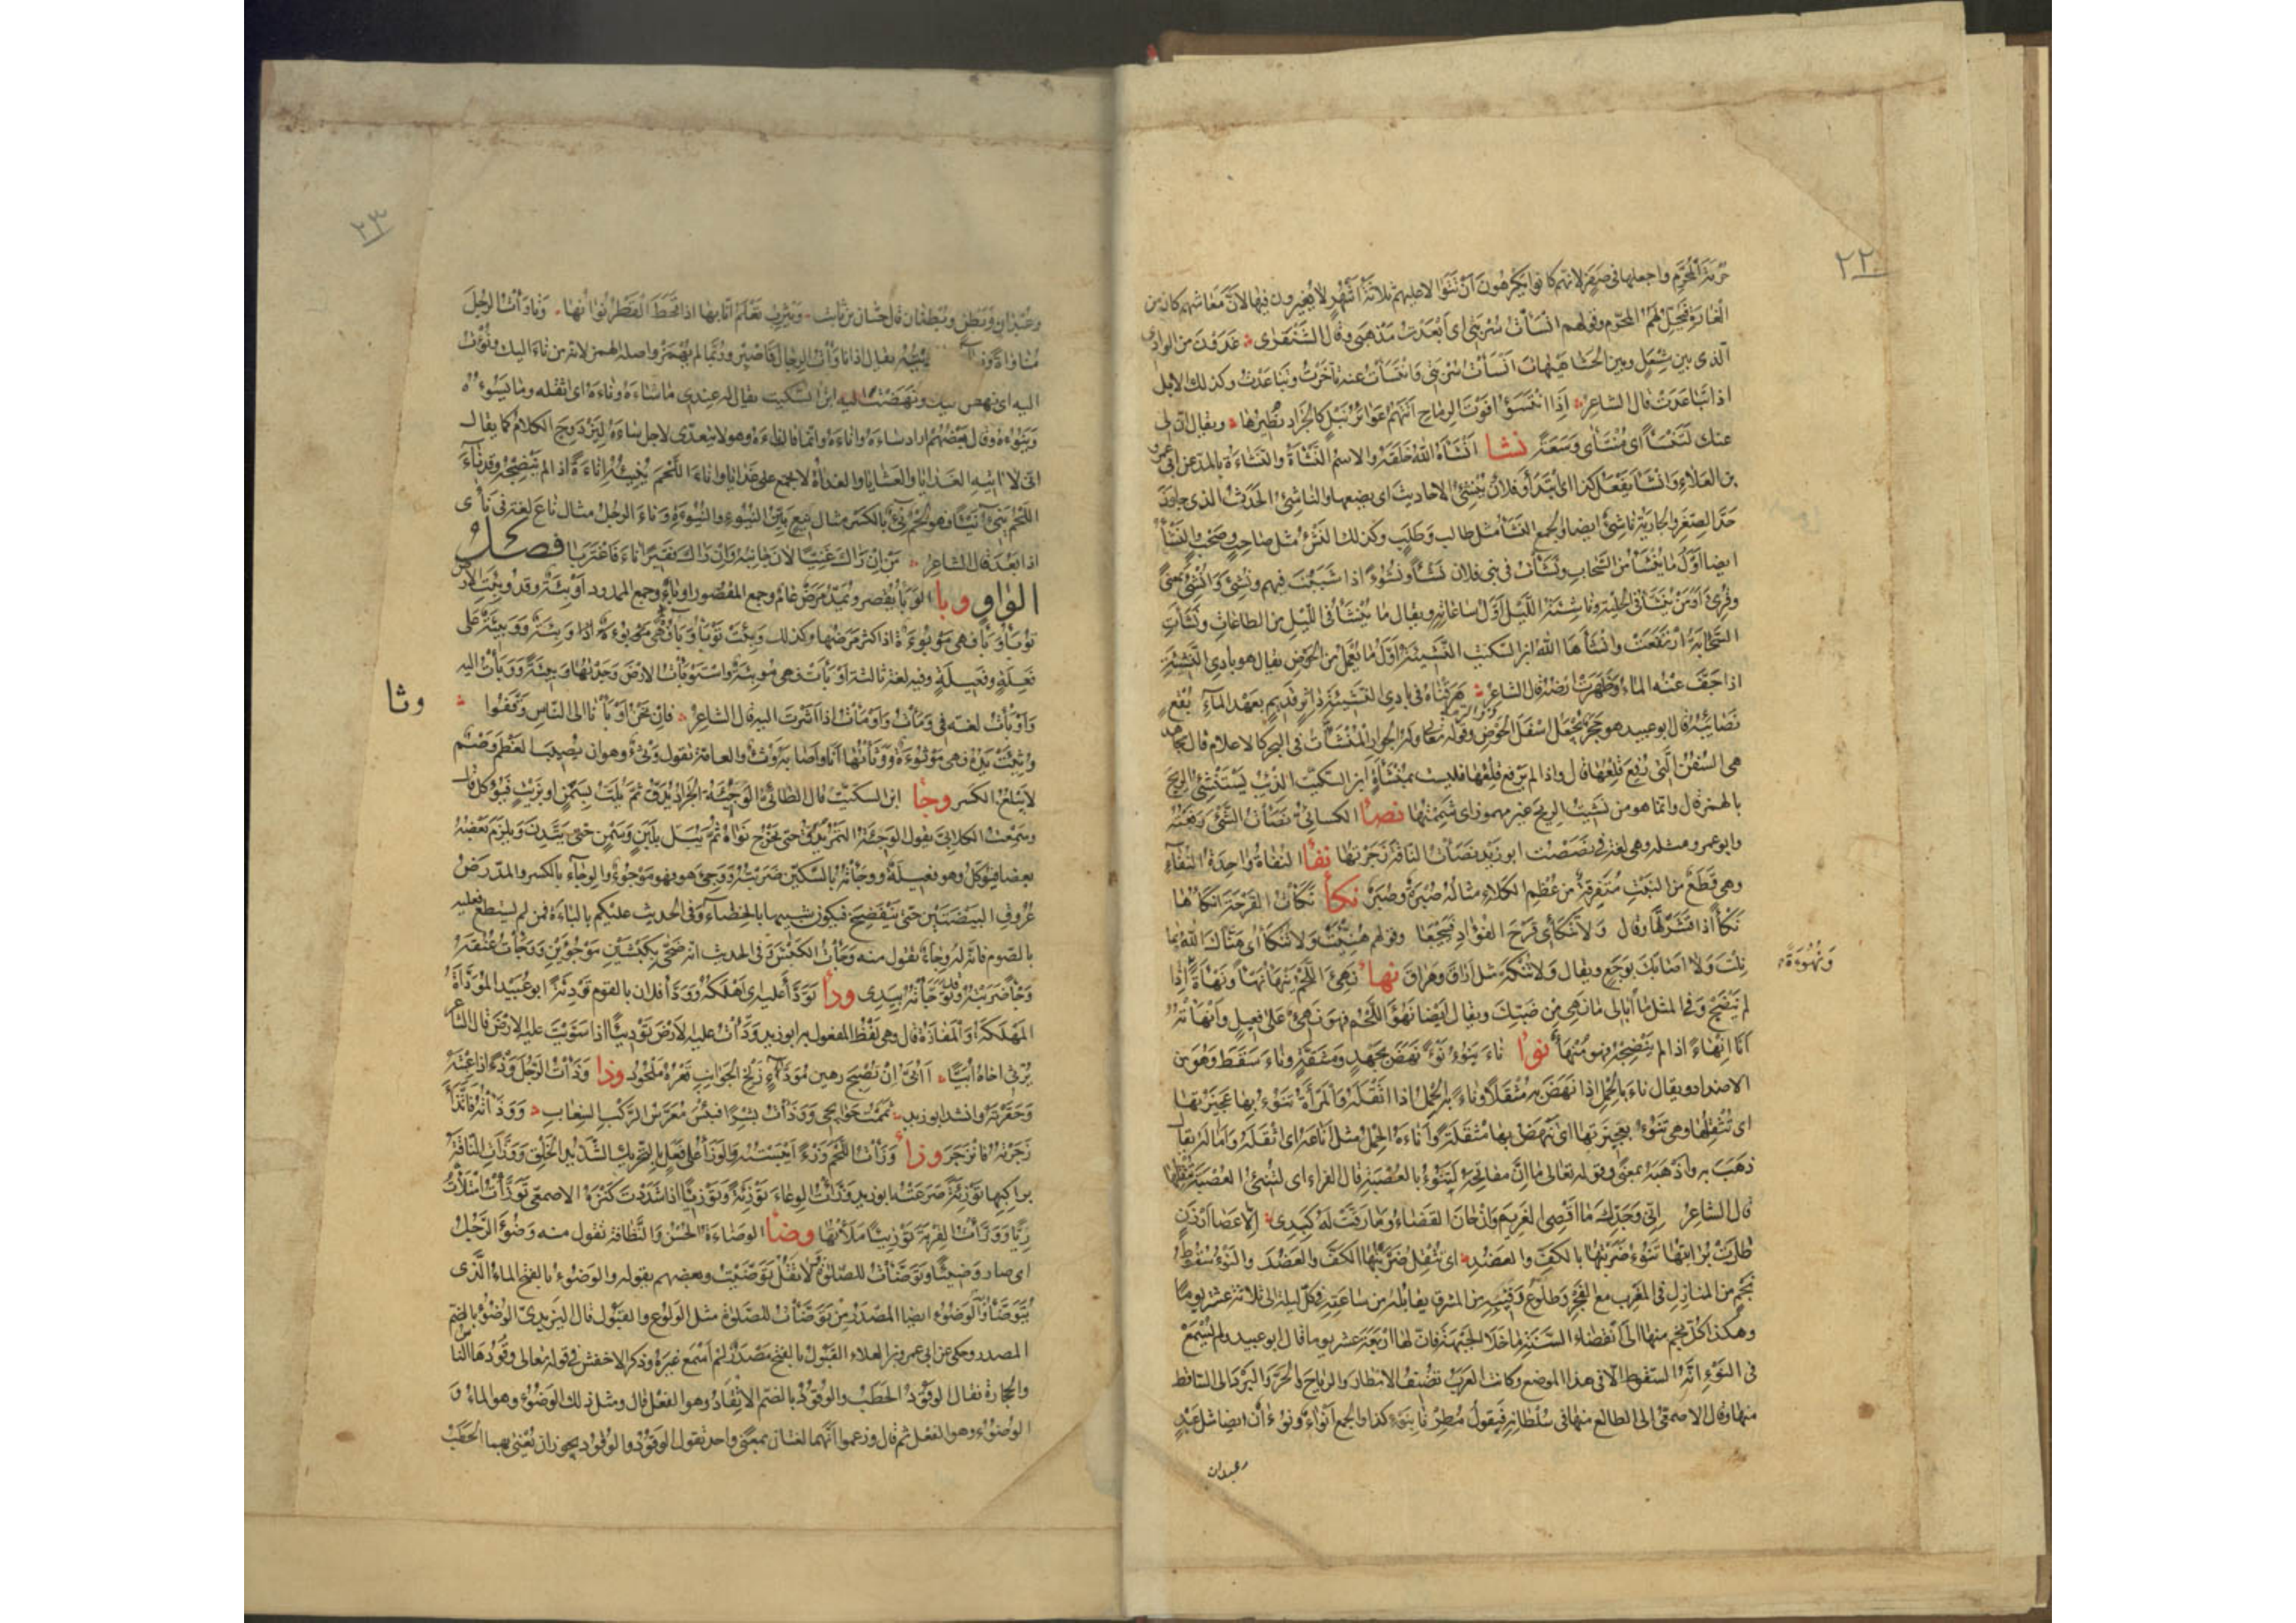 ٢٢
حُرْمَةَ المُحَرَّمِ واجعلها في صَفَرٍ لانّهم كانوا يكرهُونَ أنْ تَتَوَالى عليهم ثلاثَةُ أشهُرٍ لا يُغيرون فيها لأنّ مَعَاشهم كان من
الغَارَةِ فيُحِلّ لهم المحرّم وقولهم انْسَأتْ سُرْبَتي اى أَبْعَدَتْ مَذْهَبي وقال الشَّنْفَرَى غَدَوْنَ من الوادى
الّذى بين مِشعَلٍ وبين الحَشَا هَيْهَاتَ انْسَأتُ سُرْبَتي وَانْتَسَأتُ عنه تأخّرتُ وتباعَدْتُ وكذلك الابل
اذا تباعَدَتْ قال الشاعر إذا انْتَسَؤا فَوْتَ الرِّماحِ أتَتْهُمُ عَوَائِرُ نَبْلٍ كالجَرَادِ تُطِيرُها ويقال انّ لى
عنك لَمُنْتَسَأً اى مُنْتَأى وَسَعَةً نشا انْشَأهُ اللهُ خَلَقَهُ والاسم النَّشْأةُ والنَّشَاءَةُ بالمد عن ابى عمرو
بن العَلَاءِ وانْشَأ يَفْعَلُ كذا اى ابْتَدَأ وفلان يُنْشِئُ الاحاديثَ اى يضعها والناشِئُ الحَدَثُ الذى جاوَزَ
حدَّ الصِّغَرِ والجارِيَةُ ناشِئٌ ايضا والجمع النَّشَأُ مثل طالب وَطَلَبٍ وكذلك النَّشْءُ مثل صاحِبٍ وصَحْبٍ والنَّشْأُ
ايضا أوّلُ ما يَنْشَأ من السَّحابِ ونَشَأتُ في بنى فلان نَشْأً ونُشُوءً اذا شَبَبْتَ فيهم ونُشِّئَ وَأُنْشِئَ بمعنىً
وقُرِئَ اوَمَنْ يُنَشَّأُ في الحِلْيَةِ وناشِئَةُ اللَّيْلِ أوّلُ ساعاتِهِ ويقال ما يَنْشَأُ في اللَّيل من الطاعاتِ ونَشَأتِ
السَّحَابَةُ ارْتَفَعَتْ وانْشَأَهَا اللهُ ابن السّكيت النَّشِيئَةُ أوَّلُ ما يُعْمَلُ من الحَوْضِ يقال هو بادِى النَّشِيئَةِ
اذا جَفَّ عَنْهُ الماءُ وظَهَرَتْ ارْضُهُ قال الشاعر هَرَقْنَاهُ في بادِى النَّشِيئَةِ دَاثِرٍ قَدِيمٍ بِعَهْدِ المآءِ بُقْعٍ
نَصَائِبُهْ قال ابو عبيد هو حَجَرٌ يُجْعَلُ اسْفَلَ الحَوْضِ وقوله تعالى وله الجوارِ المُنْشَآتُ في البحر كالاعلام قال مجاهد
هى السُّفُنُ الّتى رُفِعَ قِلْعُها قال واذا لم يُرْفَع قِلْعُها فليست بمُنْشَأةٍ ابن السّكّيت الذِّئْبُ يَسْتَنْشِئُ الرِّيحَ
بالهمز قال وانّما هو من نَشِيتُ الرِّيحَ غير مهموز اى شَمِمْتُها نصأ الكسائىّ نَصَأتُ الشَّئَ رَفَعْتُهُ
وابو عمرو مثله وهى لغة في نَصَصْتُ ابو زيد نَصَأتُ الناقَةَ زَجَرْتُها نفأ النُّفَأةُ واحِدَةُ النُّفَأِ
وهى قِطَعٌ من النَّبْتِ مُتَفَرِّقَةٌ من عُظْمِ الكَلَاءِ مثاله صُبْرَةٌ وصُبَرٌ نكأ نَكَأتُ القَرْحَةَ انْكَأُهَا
نَكْأً اذا قَشَرْتَهَا وقال وَلَا تَنْكَأى قَرْحَ الفُؤادِ فَيَيْجَعَا وقولهم هُنِّئْتَ ولا تُنْكَأْ اى هَنَّاكَ اللهُ بِمَا
نِلْتَ وَلا اصَابَكَ بِوَجَعٍ ويقال وَلا تُنْكَهْ مثل أَرَاقَ وهَرَاقَ نهأ نَهِئَ اللَّحْمُ يَنْهَأُ نَهْأً ونَهَاءَةً اذا
وَنُهُوءَةً
لم يَنْضَجْ وفي المثل ما أُبالى مانَهِئَ مِنْ ضَبِّكَ ويقال ايضا نَهُؤَ اللَّحْمُ فهو نَهِئٌ على فعيلٍ وأَنْهَأتُهُ
أنا إنْهَاءً اذا لم تُنْضِجْهُ فهو مُنْهَأٌ نوأ ناءَ يَنُوءُ نَوْءً نَهَضَ بِجَهْدٍ ومَشَقَّةٍ وناءَ سَقَطَ وهو من
الاضداد ويقال ناءَ بالحِمْلِ إذا نَهَضَ بِهِ مُثْقَلاً وناءَ به الحِمْلُ اذا اثْقَلَهُ والمَرْأَةُ تَنُوءُ بِها عَجِيزَتُها
اى تُثْقِلُها وهى تَنُوءُ بِعَجِيزَتِها اى تَنْهَضُ بها مُثْقَلَةً وأَنَاءَهُ الحِمْلُ مثل أَنَاعَهُ اى اثْقَلَهُ وأمالَهُ كما يقال
ذهَبَ به وأَذْهَبَهُ بمعنىً وقوله تعالى ما إنَّ مفاتِحَهُ لَتَنُوءُ بالعُصْبَةِ قال الفراء اى لتُنِئُ العُصْبَةَ تُثْقِلُها
قال الشاعر إنّى وَجَدِّكَ مَا اقْضِى الغَرِيمَ وَإنْ حَانَ القَضَاءُ وما رَقَّتْ لَهُ كَبِدِى إلّا عَصَا أَرْزَنٍ
طارَتْ بُرَايَتُها تَنُوءُ ضَرْبَتُها بالكَفِّ والعَضُدِ اى تُثْقِلُ ضَرْبَتُها الكَفَّ والعَضُدَ والنَّوْءُ سُقُوطُ
نَجْمٍ من المنازِلِ في المَغْرِبِ مع الفَجْرِ وَطُلوعُ رَقِيبِهِ من المشرق يقابله من سَاعَتِهِ في كلّ ليلة الى ثلاثة عشر يوما
وهكذا كلّ نجم منها الى انْقِضَاءِ السَّنَةِ ما خَلا الجَبْهَةَ فإنّ لها ارْبَعَةَ عَشر يوما قال ابو عبيد ولم يُسْمَعْ
في النَّوْءِ انّه السُّقُوطُ الا في هذا الموضع وكانت العرب تُضيفُ الامطار والرياح والحَرَّ والبَرْدَ الى الساقط
منها وقال الاصمعىّ الى الطالع منها في سُلْطانِهِ فَيَقُولُ مُطِرْنَا بِنَوْءِ كذا والجمع أنواءٌ ونُوءَانٌ ايضا مثل عَبْدٍ
وعبدان
٢٣
وعُبْدَانٍ وَبَطْنٍ وبُطْنَانٍ قال حسّان بن ثابت وَيَثْرِبُ تَعْلَمُ أنّا بها اذا قَحَطَ القَطْرُ نُوآنُها وناوَأتُ الرَّجُلَ
مُنَاوَاةً يقال اذا ناوَأتَ الرِّجَالَ فاصْبِرْ ورُبَّما لم يُهْمَز واصله الهمز لانّه من ناءَ اليك ونُؤْتَ
اليه اى نهض اليك ونَهَضْتَ اليه ابن السّكّيت يقال له عندى ما ساءَهُ وناءَهُ اى اثقله وما يَسُوءُهُ
ويَنُوءُهُ وقال بعضُهُم اراد ساءَهُ وأناءَهُ وانّما قال ناءَهُ وهو لا يتعدّى لاجل ساءَهُ لِيَزْدَوِجَ الكلامُ كما يقال
انّى لَآتِيهِ الغَدَايَا والعَشَايَا والغداةُ لا يجمع على غدايا واناءَ اللَّحْمَ يُنِيئُهُ إناءَةً اذا لم يُنْضِجْهُ وقد ناءَ
اللَّحْمُ يَنِئُ نَيْئًا فهو لحْمٌ نِئٌ بالكسر مثال نِيعٍ بَيِّنُ النُّيُوءِ والنُّيُوءَةِ وناءَ الرجل مثال ناعَ لغة في نَأى
اذا بَعُدَ قال الشاعر مَنْ إنْ رَآكَ غَنِيًّا لَانَ جَانِبُهُ وإنْ رَآكَ فَقِيرًا نَاءَ فَاغْتَرَبَا فصل
الواو وبا الوَبَأُ يُقْصَر ويُمَدّ مَرَضٌ عامٌّ وجمع المقصور اوْبَاءٌ وجمع الممدود أوْبِئَةٌ وقد وَبِئَتِ الارض
تَوْبَأُ وَبَأً فهى مَوْبُوءَةٌ اذا كثر مَرَضُها وكذلك وَبِئَتْ
فَعِلَةٍ وفَعِيلَةٍ وفيه لغة ثالثة أوْبَأَتْ فهى مُوبِئَةٌ واسْتَوْبَأتُ الارْضَ وَجَدْتُها وَبِئَةً وَوَبَأتُ اليه
وأوْبَأتُ لغة في وَمَأتُ وَأَوْمَأتُ اذا أشَرْتَ اليه قال الشاعر وإنْ نَحْنُ أوْبَأنَا الى النَّاسِ وَقَّفُوا
وثا
وُثِئَتْ يَدُهُ فهى مَوْثُوءَةٌ وَوَثَأتُها أنا وأصَابَهُ وَثْءٌ والعامّة تقول وَثْىٌ وهو ان يُصيبَ العَظْمَ وَصْمٌ
لا يَبْلُغُ الكَسْر وجأ ابن السكّيت قال الطائىّ الوَجِيئَةُ الجَرادُ يُدَقّ ثمّ يُلَتّ بِسَمْنٍ او بزَيْتٍ فيُؤكل قال
وسمعت الكلابىّ يقول الوَجِيئَةُ التَّمْرُ يُدَقُّ حتى يَخْرُجَ نَوَاهُ ثُمَّ يُبَلّ بِلَبَنٍ وَسَمْنٍ حتى يَتَّدِنَ وَيَلْزَمَ بَعْضُهُ
بعضا فيُؤكل وهو فعِيلَةٌ ووجَأتُهُ بالسِّكّين ضَرَبْتُهُ ووُجِئَ هو فهو مَوْجُوءٌ والوِجَاءُ بالكسر والمدّ رَضُّ
عُرُوقِ البَيْضَتَيْنِ حتى تَنْفَضِخَ فيكون شبيها بالخِصَاءِ وفي الحديث عليكم بالبَاءَةِ فمن لم يستطع فعليه
بالصّوم فانّه له وِجَاءٌ تقول منه وَجَأتُ الكَبْشَ وفي الحديث انّه ضَحَّى بِكَبْشَيْنِ مَوْجُوءَيْنِ وَوَجَأتُ عُنُقَهُ
وَجْأً ضَرَبْتُهُ وقد تَوَجَّأتُهُ بِيَدِى ودأ تَوَدَّأ عليه اى أهْلَكَهُ وَوَدَّأ فلان بالقوم تَوْدِئَةً ابو عُبَيد المُوَدَّأَةُ
المَهْلَكَةُ والمَفازَةُ قال وهى بلَفْظ المفعول به ابو زيد وَدَّأتُ عليه الأرْضَ تَوْدِيئًا اذا سَوَّيْتَ عليه الارْضَ قال الشاعر
يَرْثى اخاهُ أُبَيًّا أَأُبَىُّ إنْ تُصْبِحْ رَهِينَ مُوَدَّإٍ زَلْخِ الجَوَانِبِ قَعْرُهُ مَلْحُودُ وذأ وَذَأتُ الرَّجُلَ وَذْءً اذا عِبْتَهُ
وَحَقَّرْتَهُ وانشد ابو زيد ثَمَمْتُ حَوَائِجى وَوَذَأتُ بِشْرًا فَبِئْسَ مُعَرَّسُ الرَّكْبِ السِّغَابِ وَوَذَأتُهُ فاتَّذَأ
زَجَرْتُهُ فانْزَجَرَ وزأ وَزَأتُ اللَّحْمَ وَزْءً أيْبَسْتُهُ والوَزَأُ على فَعَلٍ بالتّحريك الشَّدِيدُ الخَلْقِ وَوَزَّأتِ النَّاقَةُ
براكِبِها تَوْزِئَةً صَرَعَتْهُ ابو زيد وَزَّأتُ الوِعَاءَ تَوْزِئَةً وتَوْزِيئًا اذا شَدَدْتَ كَنْزَهُ الاصمعىّ تَوَزَّأتُ امْتَلَأتُ
رِيًّا وَوَزَّأتُ القِرْبَةَ تَوْزِيئًا مَلَأتُها وضأ الوَضَاءَةُ الحُسْنُ وَالنَّظَافَةُ تقول منه وَضُؤَ الرَّجُلُ
اى صار وَضِيئًا وتَوَضَّأتُ للصّلوة وَلا تَقُلْ تَوَضَّيْتُ وبعضهم يقوله والوَضُوءُ بالفتح الماءُ الّذى
يُتَوَضَّأُ به والوَضُوءُ ايضا المصْدَرُ مِنْ تَوَضَّأتُ للصّلوة مثل الوَلُوعِ والقَبُولِ قال اليزيدىّ الوُضُوءُ بالضّم
المصدر وحكى عن ابى عمرو بن العلاء القَبُول بالفتح مَصْدَرٌ لم أسْمَع غيرَهُ وذكر الاخفش في قوله تعالى وقُودُهَا النّاس
والحجارة فقال الوَقُودُ الحَطَبُ والوُقُودُ بالضّم الاتّقَادُ وهو الفعل قال ومثل ذلك الوَضُوءُ وهو الماءُ وَ
الوُضُوءُ وهو الفعل ثم قال وزعموا أنّهما لغتان بمعنًى واحد تقول الوَقُودُ والوُقُودُ يجوز ان يُعْنَى بهما الحَطَبُ